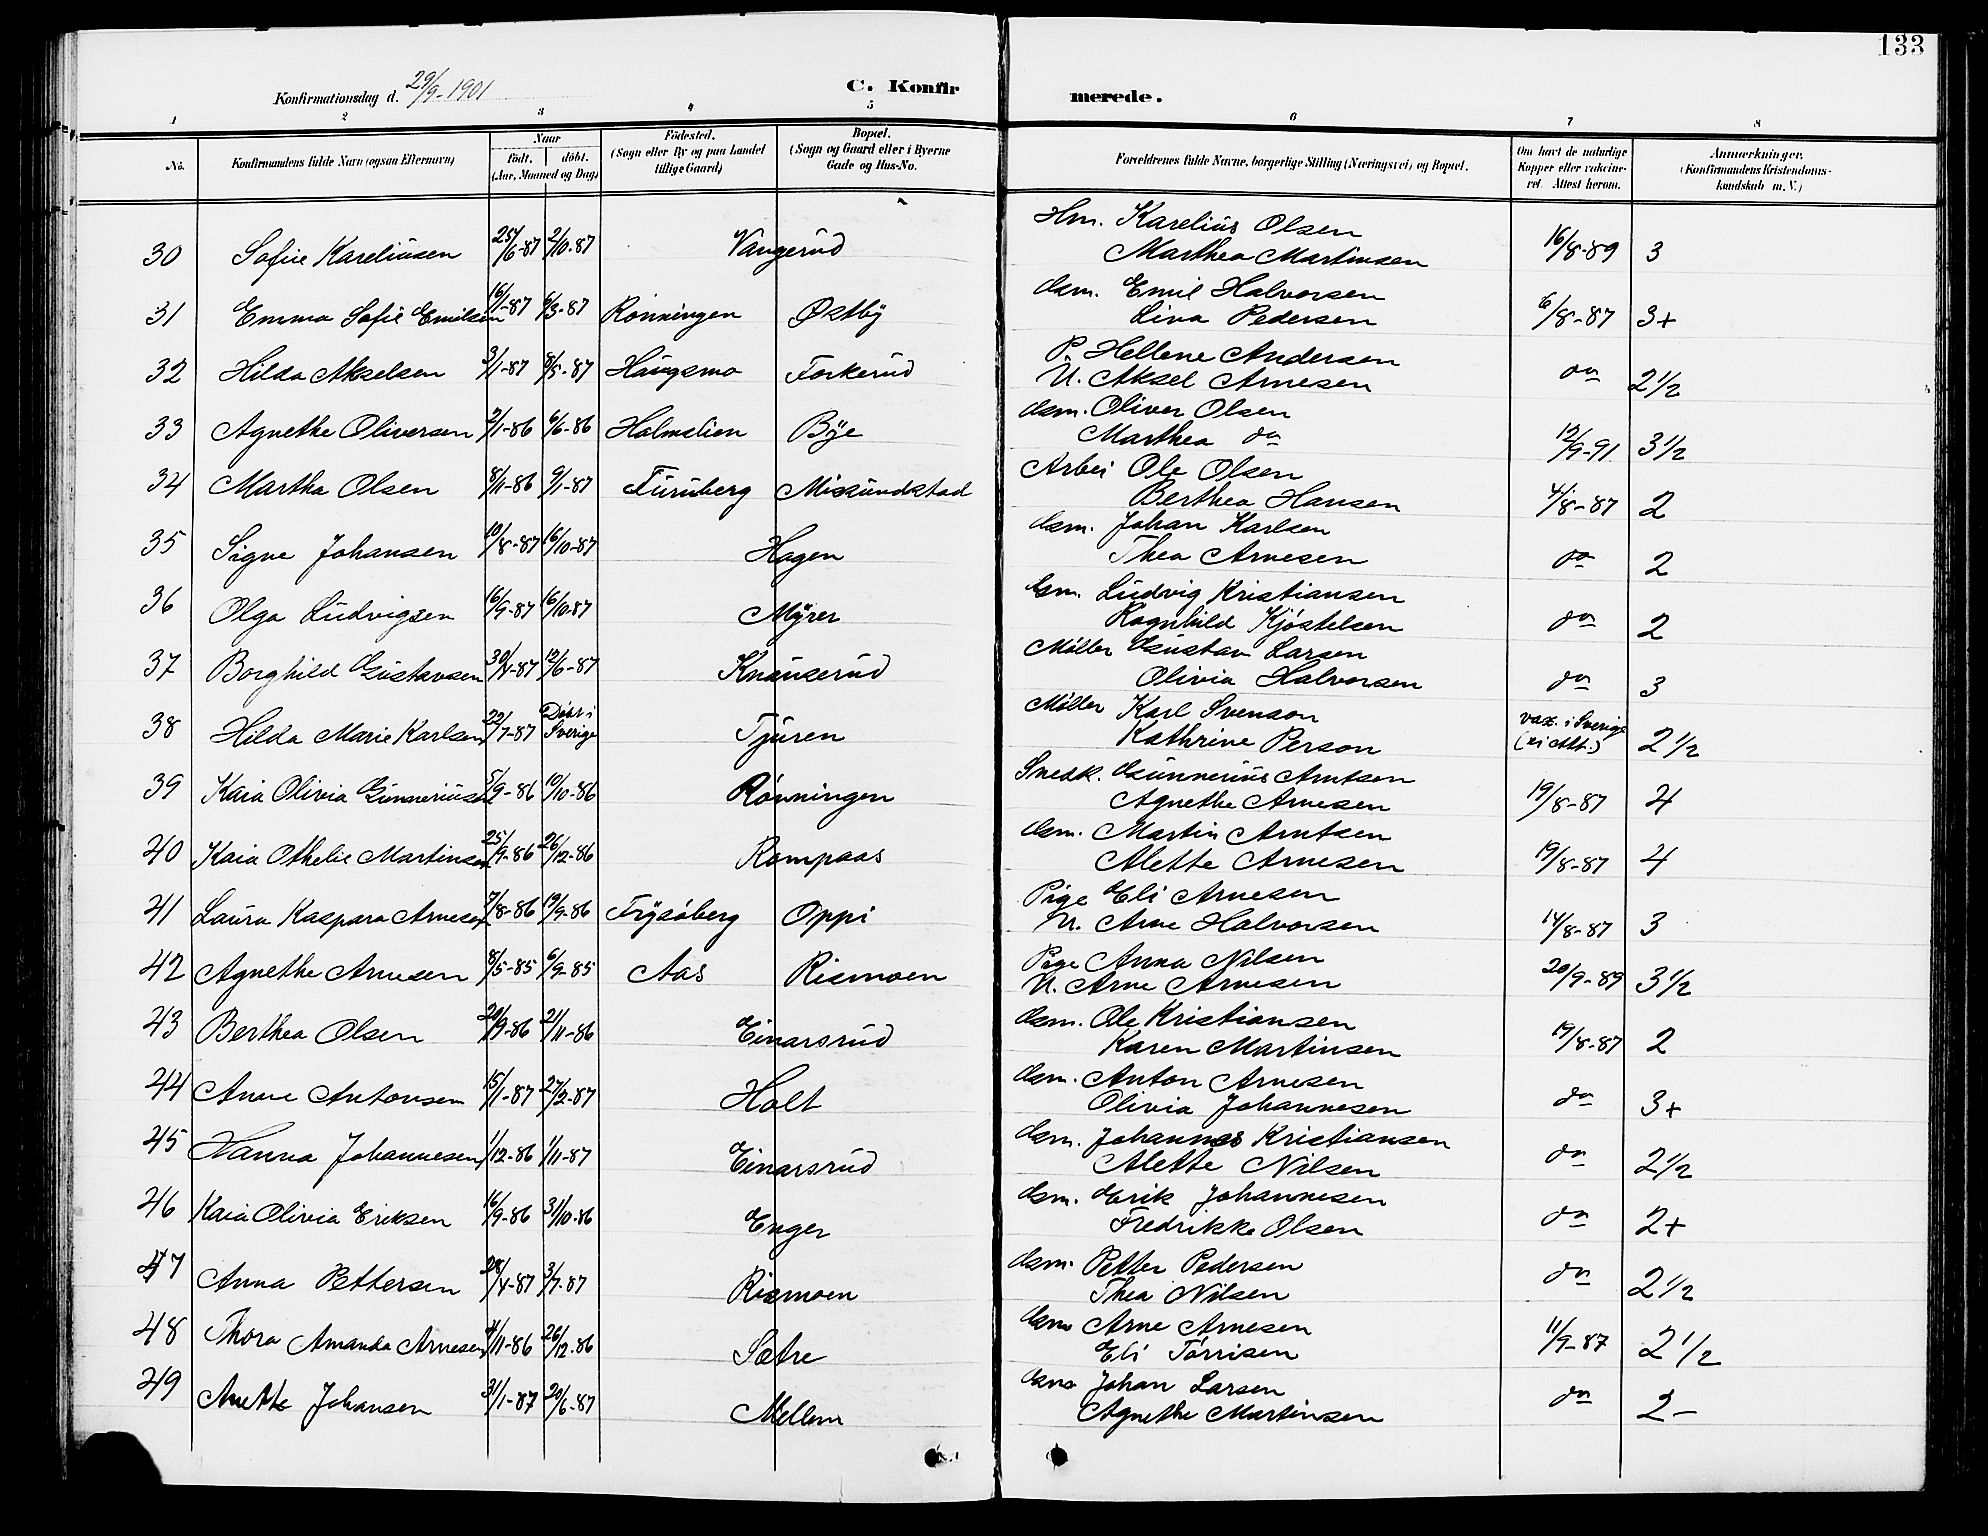 133
Konfirmationsdag d. 29/9-1901
C. Konfir merede.
1 2 3 4 5 6 7 8
No. Konfirmandens fulde Navn (ogsaa Efternavn) Naar födt. döbt. (Aar, Maaned og Dag) Födested. (Sogn eller By og paa Landet tillige Gaard) Bopæl. (Sogn og Gaard eller i Byerne Gade og Hus-No. Forældrenes fulde Navne, borgerlige Stilling (Næringsvei) og Bopæl. Om havt de naturlige Kopper eller vakcineret. Attest herom. Anmærkninger. (Konfirmandens Kristendomskundskab m. V.)
30 Sofie Kareliusen 25/6-87 2/10-87 Vangerud Hm. Karelius Olsen 16/8-89 3
Marthea Martinsen
31 Emma Sofie Emilsen 16/1-87 6/3-87 Rønningen Østby Gsm. Emil Halvorsen 6/8-87 3+
Lina Pedersen
32 Hilda Akselsen 3/1-87 8/5-87 Haugsmo Forkerud P. Hellene Andersen do 2 1/2
U. Aksel Arnesen
33 Agnethe Oliversen 2/1-86 6/6-86 Holmelien Bye Gsm. Oliver Olsen 12/9-91 3 1/2
Marthea do
34 Martha Olsen 8/11-86 9/1-87 Furuberg Misundstad Arbei Ole Olsen 4/8-87 2
Berthea Hansen
35 Signe Johansen 10/8-87 16/10-87 Hagen Gsm. Johan Karlsen do 2
Thea Arnesen
36 Olga Ludvigsen 16/9-87 16/10-87 Myrer Gsm. Ludvig Kristiansen do 2
Ragnhild Kjøstelsen
37 Borghild Gustavsen 30/4-87 12/6-87 Knauserud Møller Gustav Larsen do 3
Olivia Halvorsen
38 Hilda Marie Karlsen 22/7-87 Døbt i Sverige Tjuren Møller Karl Svenson vax. i Sverige (ei Att.) 2 1/2
Kathrine Person
39 Kaia Olivia Gunneriusen 5/9-86 10/10-86 Rønningen Snedk. Gunnerius Arntsen 19/8-87 4
Agnethe Arnesen
40 Kaia Othelie Martinsen 25/9-86 26/12-86 Rompaas Gsm. Martin Arntsen 19/8-87 4
Alette Arnesen
41 Laura Kaspara Arnesen 7/8-86 19/9-86 Frysøberg Oppi Pige Eli Arnesen 14/8-87 3
U. Arne Halvorsen
42 Agnethe Arnesen 8/5-85 6/9-85 Aas Rismoen Pige Anna Nilsen 20/9-89 3 1/2
U. Arne Arnesen
43 Berthea Olsen 20/9-86 21/11-86 Einarsrud Gsm. Ole Kristiansen 19/8-87 2
Karen Martinsen
44 Anne Antonsen 15/1-87 27/2-87 Holt Gsm. Anton Arnesen do 3+
Olivia Johannesen
45 Hanna Johannesen 1/12-86 1/11-87 Einarsrud Gsm. Johannes Kristiansen do 2 1/2
Alette Nilsen
46 Kaia Olivia Eriksen 16/9-86 31/10-86 Enger Gsm. Erik Johannesen do 2+
Fredrikke Olsen
47 Anna Pettersen 28/4-87 3/7-87 Rismoen Gsm. Petter Pedersen do 2 1/2
Thea Nilsen
48 Thora Amanda Arnesen 4/11-86 26/12-86 Sætre Gsm Arne Arnesen 11/9-87 2 1/2
Eli Tørrisen
49 Anette Johansen 31/1-87 20/6-87 Mellem Gsm Johan Larsen do 2-
Agnethe Martinsen